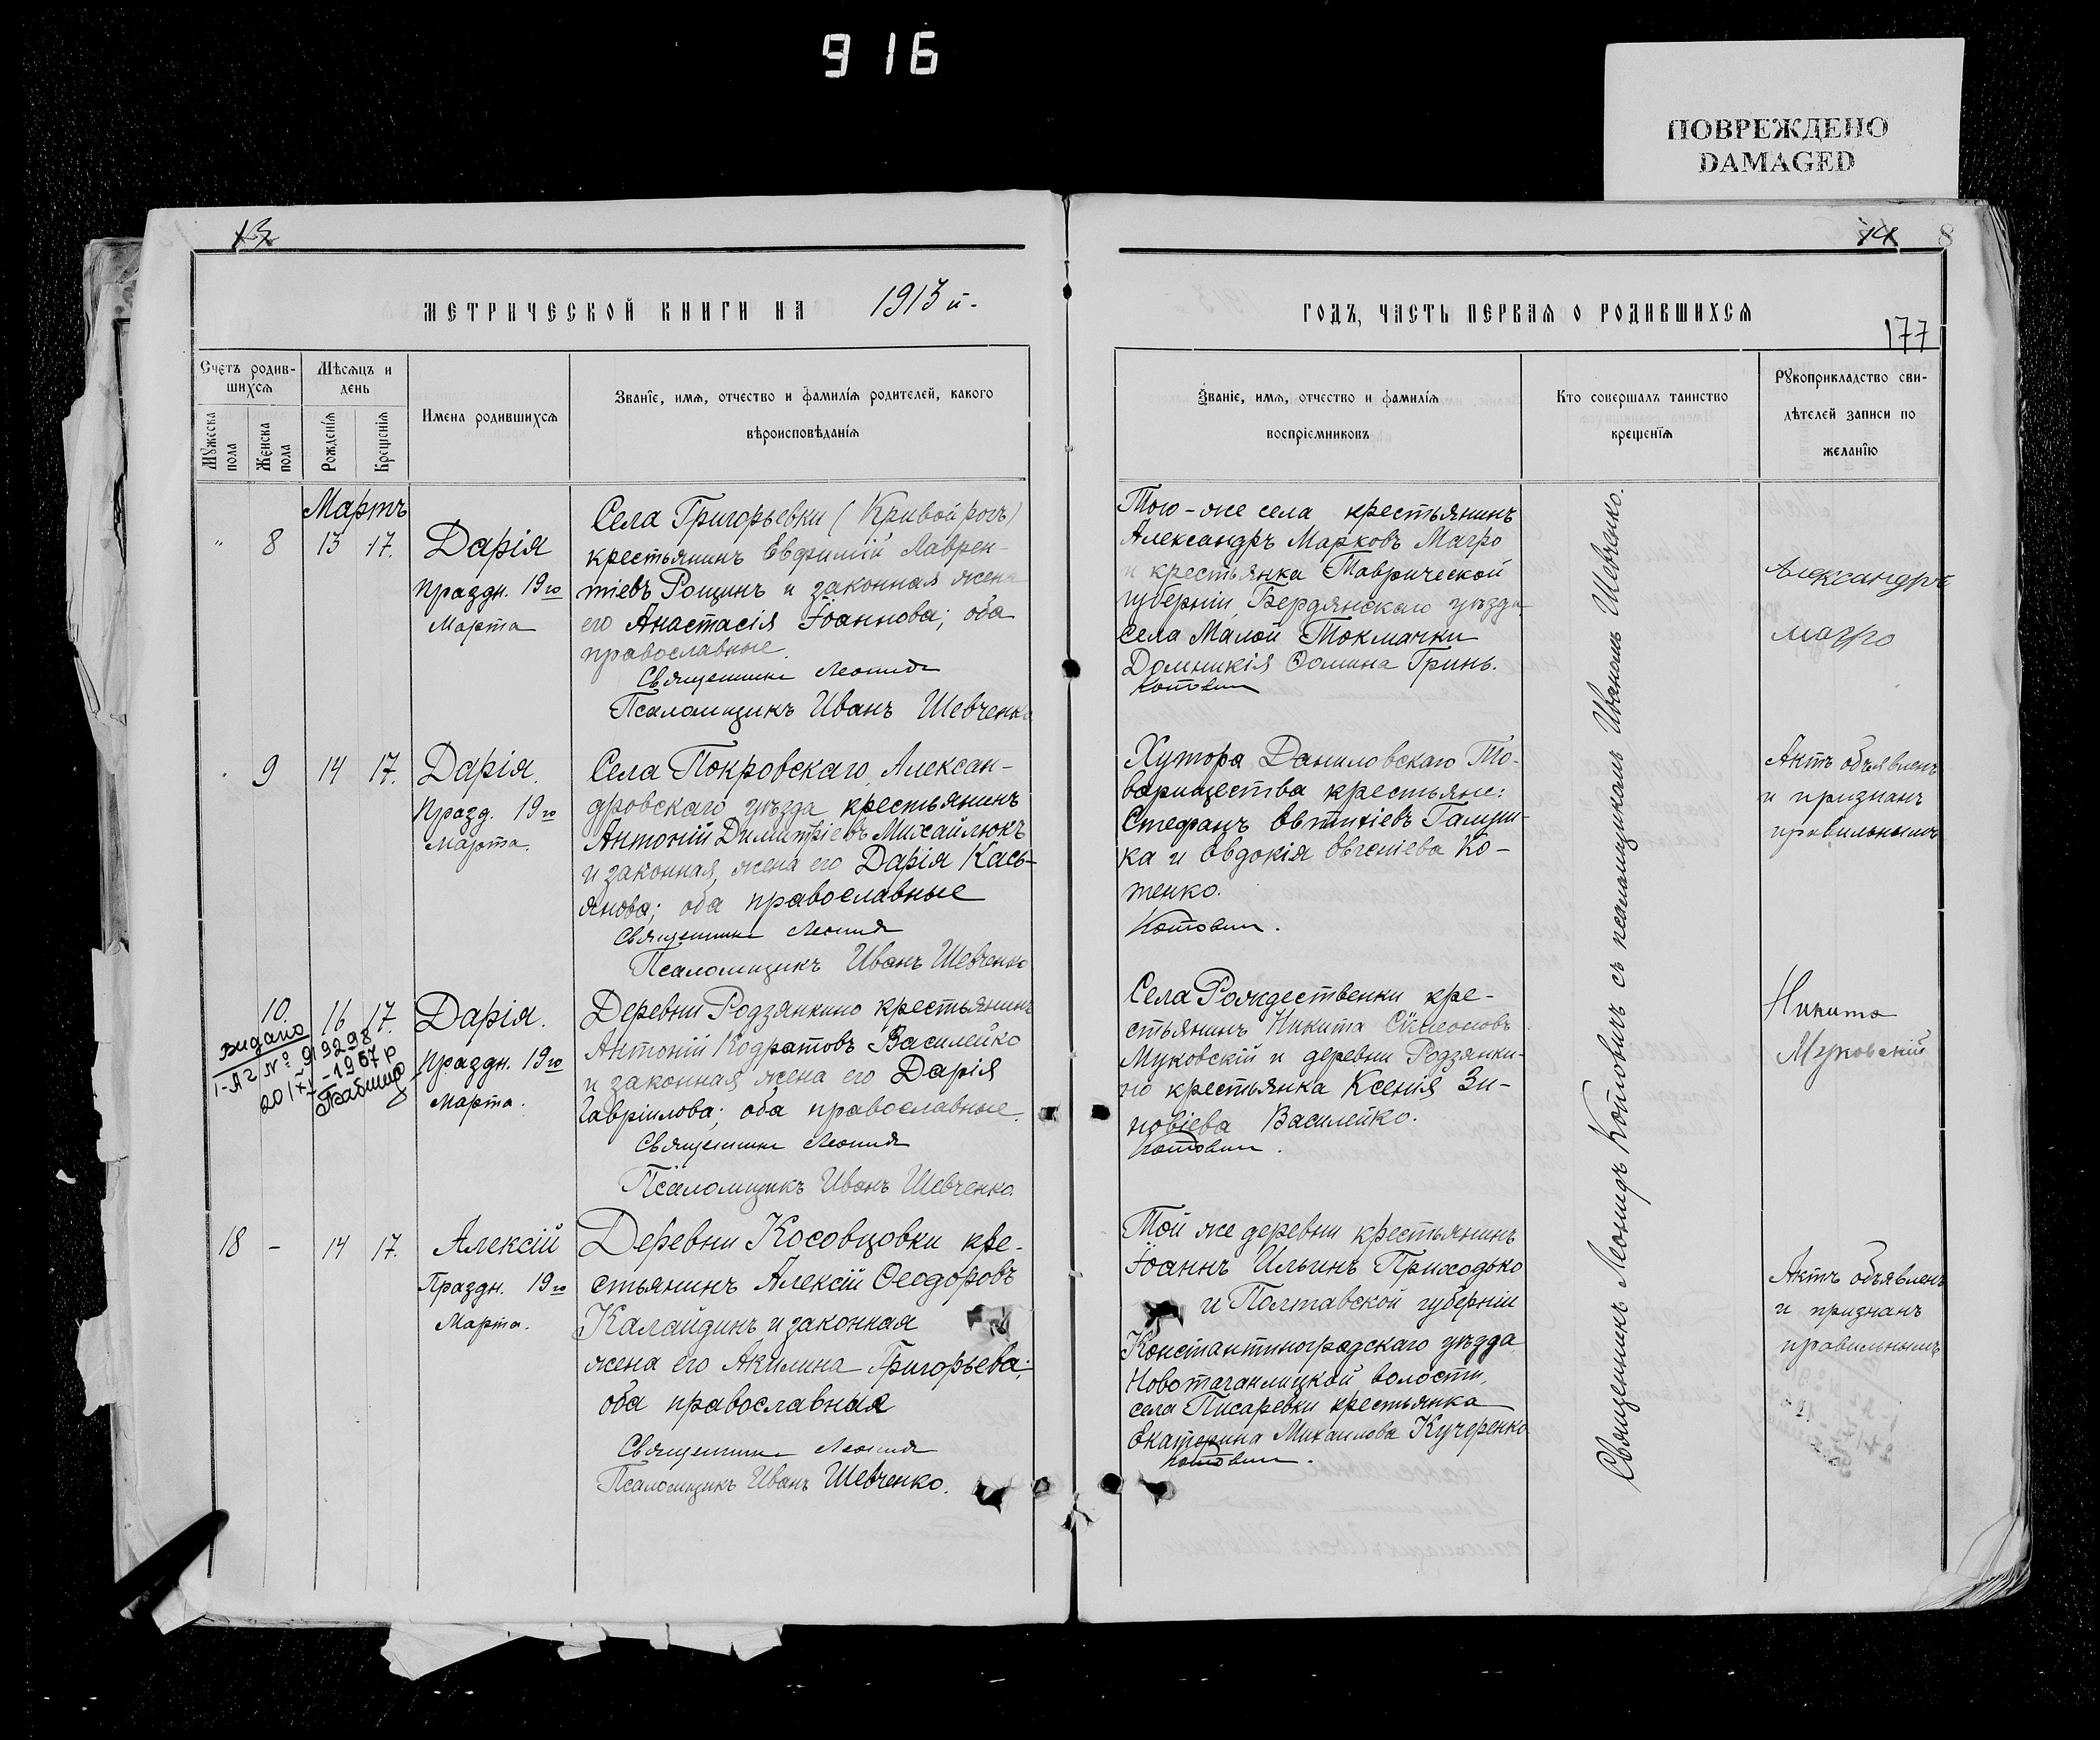 916
ПОВРЕЖДЕНО
DAMAGED
13
МЕТРИЧЕСКОЙ КНИГИ НА 1913 й.
Счетъ родив-
шихся
Мѣсяцъ и
день
Мужеска
пола
Женска
пола
Рожденія
Крещенія
Имена родившихся
Званіе, имя, отчество и фамилія родителей, какого
вѣроисповѣданія
Мартъ
" 8 13 17.
Дарія
Праздн. 19го
Марта
Села Григорьевки (Кривой рогъ)
крестьянинъ Евфимій Лаврен-
тіевъ Рощинъ и законная жена
его Анастасія Іоаннова; оба
православные.
Священникъ Леонидъ
Псаломщикъ Иванъ Шевченко
9 14 17.
Дарія.
Празд. 19го
Марта.
Села Покровскаго, Алексан-
дровскаго уѣзда крестьянинъ
Антоній Димитріевъ Михайлюкъ
и законная жена его Дарія Кась-
янова; оба православные
Священникъ Леонидъ
Псаломщикъ Иванъ Шевченко
10. 16 17.
Видано
I-АГ № 919298
20/XI-1967 р
Дарія.
Праздн. 19го
Марта.
Деревни Родзянкино крестьянинъ
Антоній Кодратовъ Василейко
и законная жена его Дарія
Гавріилова; оба православные.
Священникъ Леонидъ
Псаломщикъ Иванъ Шевченко.
18 - 14 17.
Алексій
Праздн. 19го
Марта.
Деревни Косовцовки кре-
стьянинъ Алексій Ѳеодоровъ
Калайдинъ и законная
жена его Акилина Григорьева;
оба православныя
Священникъ Леонидъ
Псаломщикъ Иванъ Шевченко.
14 8
ГОДЪ, ЧАСТЬ ПЕРВАЯ О РОДИВШИХСЯ
177
Званіе, имя, отчество и фамилія
воспріемниковъ
Кто совершалъ таинство
крещенія
Рукоприкладство сви-
дѣтелей записи по
желанію
Того-же села крестьянинъ
Александръ Марковъ Магро
и крестьянка Таврической
губерніи, Бердянскаго уѣзда
села Малой Токмачки
Домникія Ѳомина Гринь.
Котовичъ
Александръ
Магро
Хутора Даниловскаго То-
варищества крестьяне:
Стефанъ Евтихіевъ Галуш-
ка и Евдокія Евгеніева Ко-
тенко.
Котовичъ.
Актъ объявленъ
и признанъ
правильнымъ
Села Рождественки кре-
стьянинъ Никита Сімеоновъ
Муковскій и деревни Родзянки-
но крестьянка Ксенія Зи-
новіева Василейко.
Котовичъ.
Никита
Муковскій
Той же деревни крестьянинъ
Іоаннъ Ильинъ Приходько
и Полтавской губерніи
Константиноградскаго уѣзда
волости,
села Писаревки крестьянка
Екатерина Михаилова Кучеренко
Котовичъ.
Актъ объявленъ
и признанъ
правильнымъ
Священникъ Леонидъ Котовичъ съ псаломщикомъ Иваномъ Шевченко.